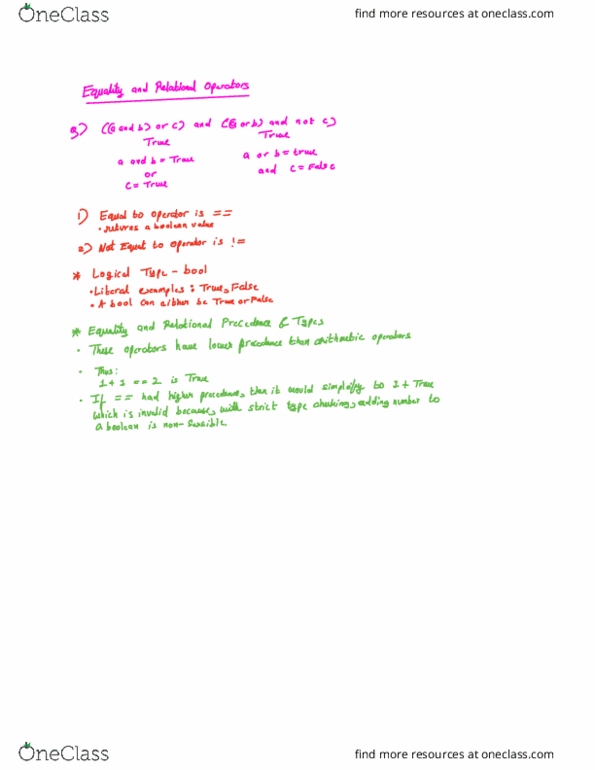 OneClass
find more resources at oneclass.com
Equality and Relational Operators
Q) ((a and b) or c) and ((a or b) and not c)
True
True
a and b = True
a or b = true
or
and c = False
c = True
1) Equal to operator is ==
• returns a boolean value
2) Not Equal to operator is !=
* Logical Type - bool
• Literal examples : True, False
• A bool can either be True or False
* Equality and Relational Precedence & Types
• These operators have lower precedence than arithmetic operators
• Thus:
1 + 1 == 2 is True
• If == had higher precedence, than it would simplify to 1 + True
which is invalid because, with strict type checking, adding number to
a boolean is non-sensible
OneClass
find more resources at oneclass.com